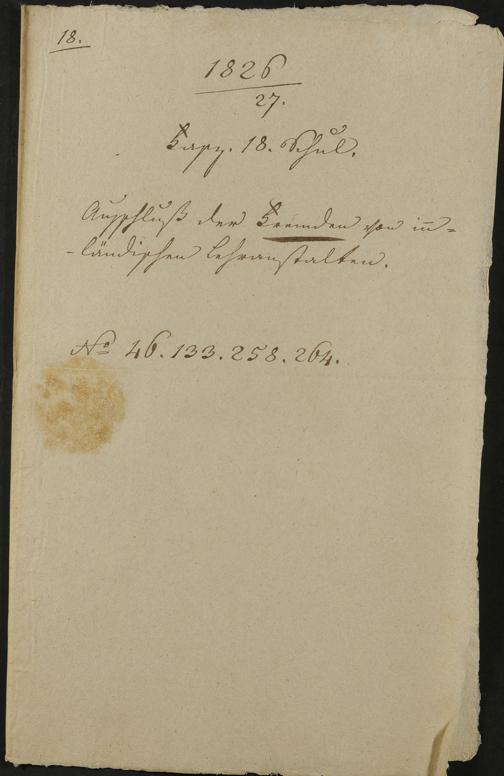 18.
1826
27.
Fasz. 18. Schul.
Ausschluß der Fremden von in¬
¬ländischen Lehranstalten.
No 46. 133. 258. 264.